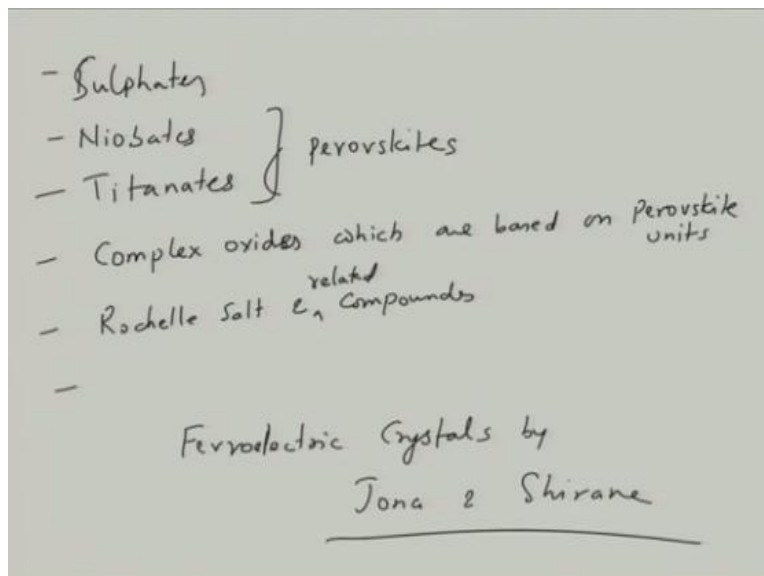 - Sulphates
- Niobates
- Titanates } perovskites
- Complex oxides which are based on Perovskite units
- Rochelle Salt & related Compounds
-
Ferroelectric Crystals by
Jona & Shirane